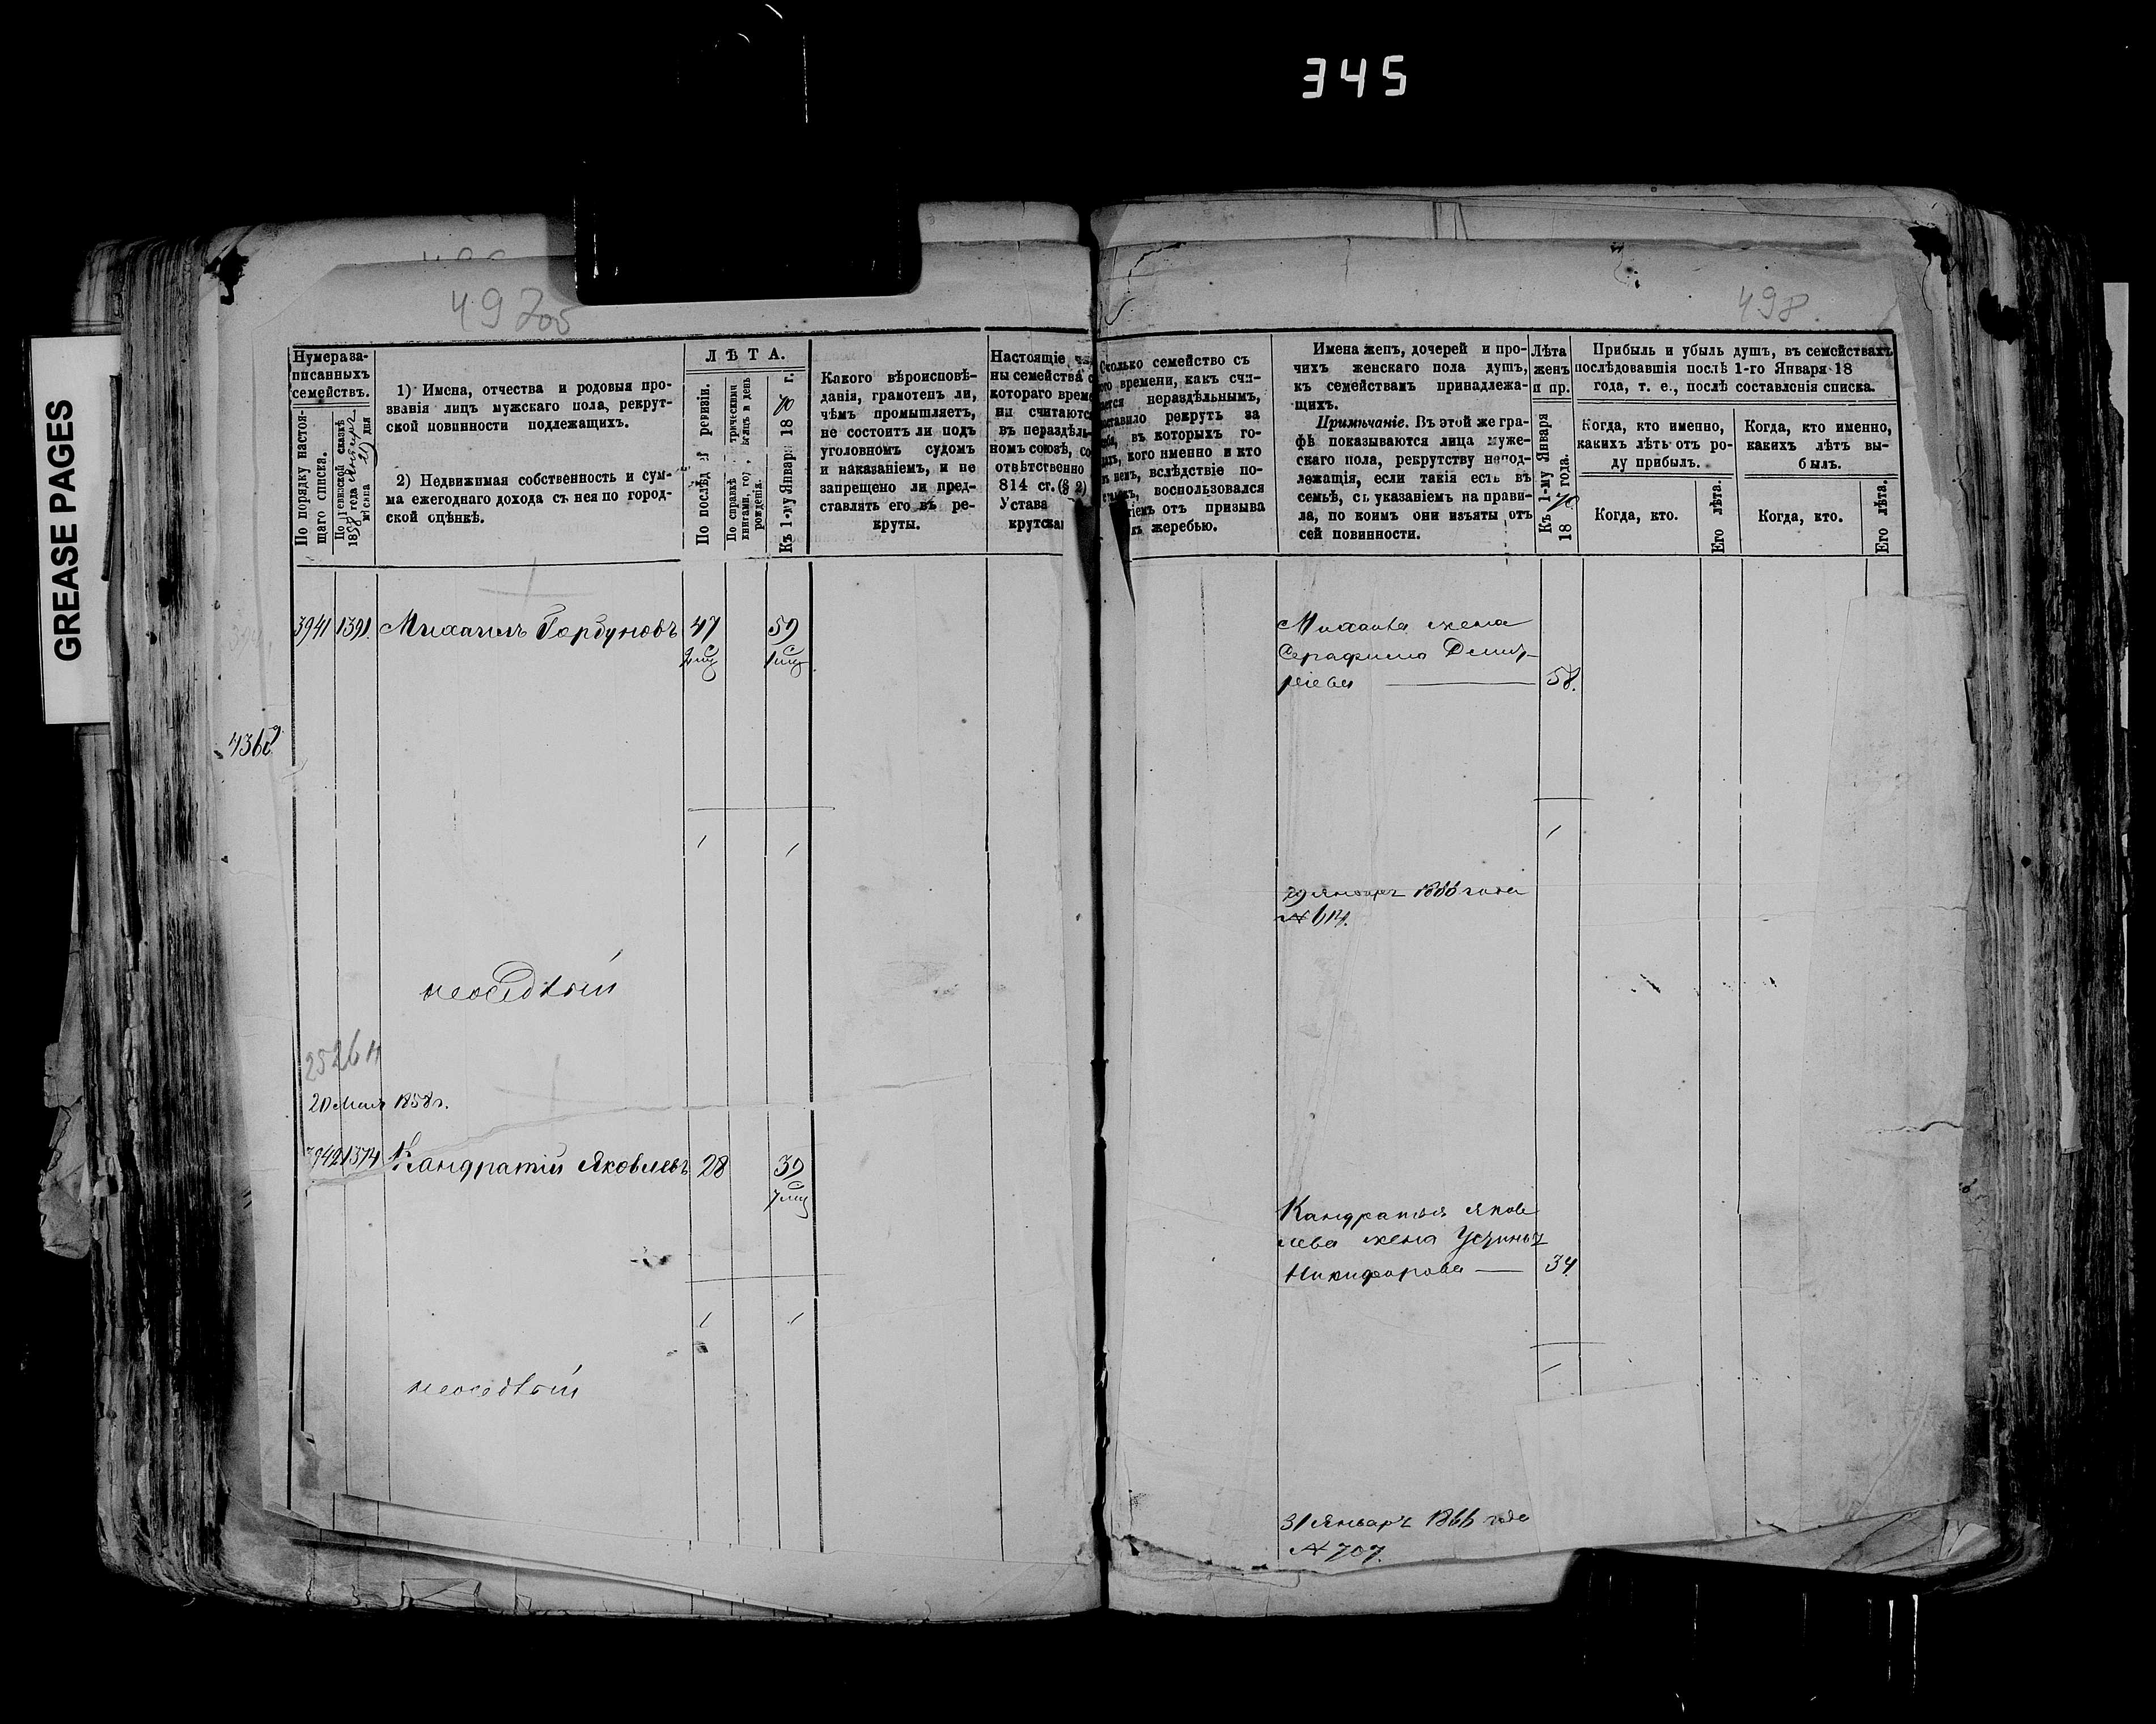 345
GREASE PAGES
497об
498.
Нумера за-
писанныхъ
семействъ.
По порядку настоя-
щаго списка.
По ревизской сказкѣ
1858 года
мѣсяца дня
1) Имена, отчества и родовыя про-
званія лицъ мужскаго пола, рекрут-
ской повинности подлежащихъ.
2) Недвижимая собственность и сум-
ма ежегоднаго дохода съ нея по город-
ской оцѣнкѣ.
ЛѢТА.
По послѣдней ревизіи.
По справкѣ метрическими
книгами, въ день
рожденія.
Къ 1-му Января 1870 г.
Какого вѣроисповѣ-
данія, грамотенъ ли,
чѣмъ промышляетъ,
не состоитъ ли подъ
уголовномъ судомъ
и наказаніемъ, и не
запрещено ли пред-
ставлять его въ ре-
круты.
Настоящіе
ны семейства с
котораго врем
ни считаютс
въ нераздѣль-
номъ союзѣ, со
отвѣтственно
814 ст. (§ 2)
Устава
крутска
Сколько семейство съ
времени, какъ счи-
тается нераздѣльнымъ,
поставило рекрутъ за
себя, въ которыхъ го-
дахъ, кого именно и кто
въ немъ, вслѣдствіе по-
воспользовался
отъ призыва
къ жеребью.
Имена женъ, дочерей и про-
чихъ женскаго пола душъ,
къ семействамъ принадлежа-
щихъ.
Примѣчаніе. Въ этой же гра-
фѣ показываются лица муже-
скаго пола, рекрутству непод-
лежащія, если такія есть въ
семьѣ, съ указаніемъ на прави-
ла, по коимъ они изъяты отъ
сей повинности.
Лѣта
женъ
и пр.
Къ 1-му Января
1870 года.
Прибыль и убыль душъ, въ семействахъ
послѣдовавшія послѣ 1-го Января 18
года, т. е., послѣ составленія списка.
Когда, кто именно,
какихъ лѣтъ отъ ро-
ду прибылъ.
Когда, кто именно,
какихъ лѣтъ вы-
былъ.
Когда, кто.
Его лѣта.
Когда, кто.
Его лѣта.
3941 1391. Михаилъ Горбуновъ 47 59
Михаила жена
Серафима Дмит-
ріева 58.
4360
1 1 1
29 Январь 1866 года
№ 614.
неосѣдлый
2526
20 Мая 1858 г.
3942 1374 Кандратій Яковлевъ 28 39
Кандратья Яков
лева жена Устинья
Никифорова 34
1 1 1
неосѣдлый
31 Январь 1866 года
№ 707.